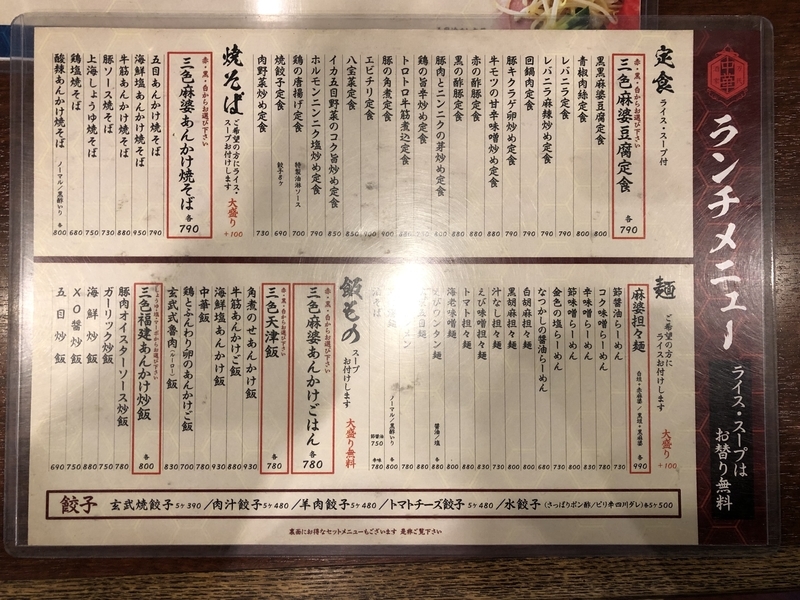 ランチメニュー
ライス・スープは
お替り無料
定食
ライス・スープ付
赤・黒・白からお選び下さい
三色麻婆豆腐定食 各790
黒黒麻婆豆腐定食 800
青椒肉絲定食 800
レバニラ定食 790
レバニラ麻辣炒め定食 790
回鍋肉定食 790
豚キクラゲ卵炒め定食 790
牛モツの甘辛味噌炒め定食
赤の酢豚定食 880
黒の酢豚定食 880
豚肉とニンニクの芽炒め定食
鶏の旨辛炒め定食
トロトロ牛筋煮込定食
豚の角煮定食
エビチリ定食 900
八宝菜定食
イカ五目野菜のコク旨炒め定食 850
ホルモンニンニク塩炒め定食 790
鶏の唐揚げ定食 特製油淋ソース 700
焼餃子定食 餃子8ヶ 690
肉野菜炒め定食 730
焼そば
ご希望の方にライス・
スープお付けします
大盛り +100
赤・黒・白からお選び下さい
三色麻婆あんかけ焼そば 各790
五目あんかけ焼そば 790
海鮮塩あんかけ焼そば 950
牛筋あんかけ焼そば 880
豚ソース焼そば 730
上海しょうゆ焼そば 750
鶏塩焼そば 680
酸辣あんかけ焼そば ノーマル/黒酢いり 各800
麺
ご希望の方に
ライスお付けします
大盛り +100
麻婆担々麺 白坦・赤麻婆/黒坦・黒麻婆 各990
節醤油らーめん 730
コク味噌らーめん 780
辛味噌らーめん 830
節味噌らーめん 800
金色の塩らーめん 730
なつかしの醤油らーめん 680
白胡麻担々麺 800
黒胡麻担々麺 800
汁なし担々麺
えび味噌担々麺
トマト担々麺
海老味噌麺
えびワンタン麺 醤油/塩
ノーマル/黒酢いり
飯もの
スープ
お付けします
大盛り無料
赤・黒・白からお選び下さい
三色麻婆あんかけごはん 各780
赤・黒・白からお選び下さい
三色天津飯 各780
角煮のせあんかけ飯 930
牛筋あんかけご飯 880
海鮮塩あんかけ飯 930
中華飯 780
鶏とふんわり卵のあんかけ飯 700
玄武式魯肉(ルーロー)飯 830
三色福建あんかけ炒飯 各800
豚肉オイスターソース炒飯 780
ガーリック炒飯 750
海鮮炒飯 880
XO醤炒飯 750
五目炒飯 690
餃子 玄武焼餃子5ヶ390/肉汁餃子5ヶ480/羊肉餃子5ヶ480/トマトチーズ餃子5ヶ480/水餃子(さっぱりポン酢/ピリ辛四川ダレ)各5ヶ500
裏面にお得なセットメニューもございます 是非ご覧下さい